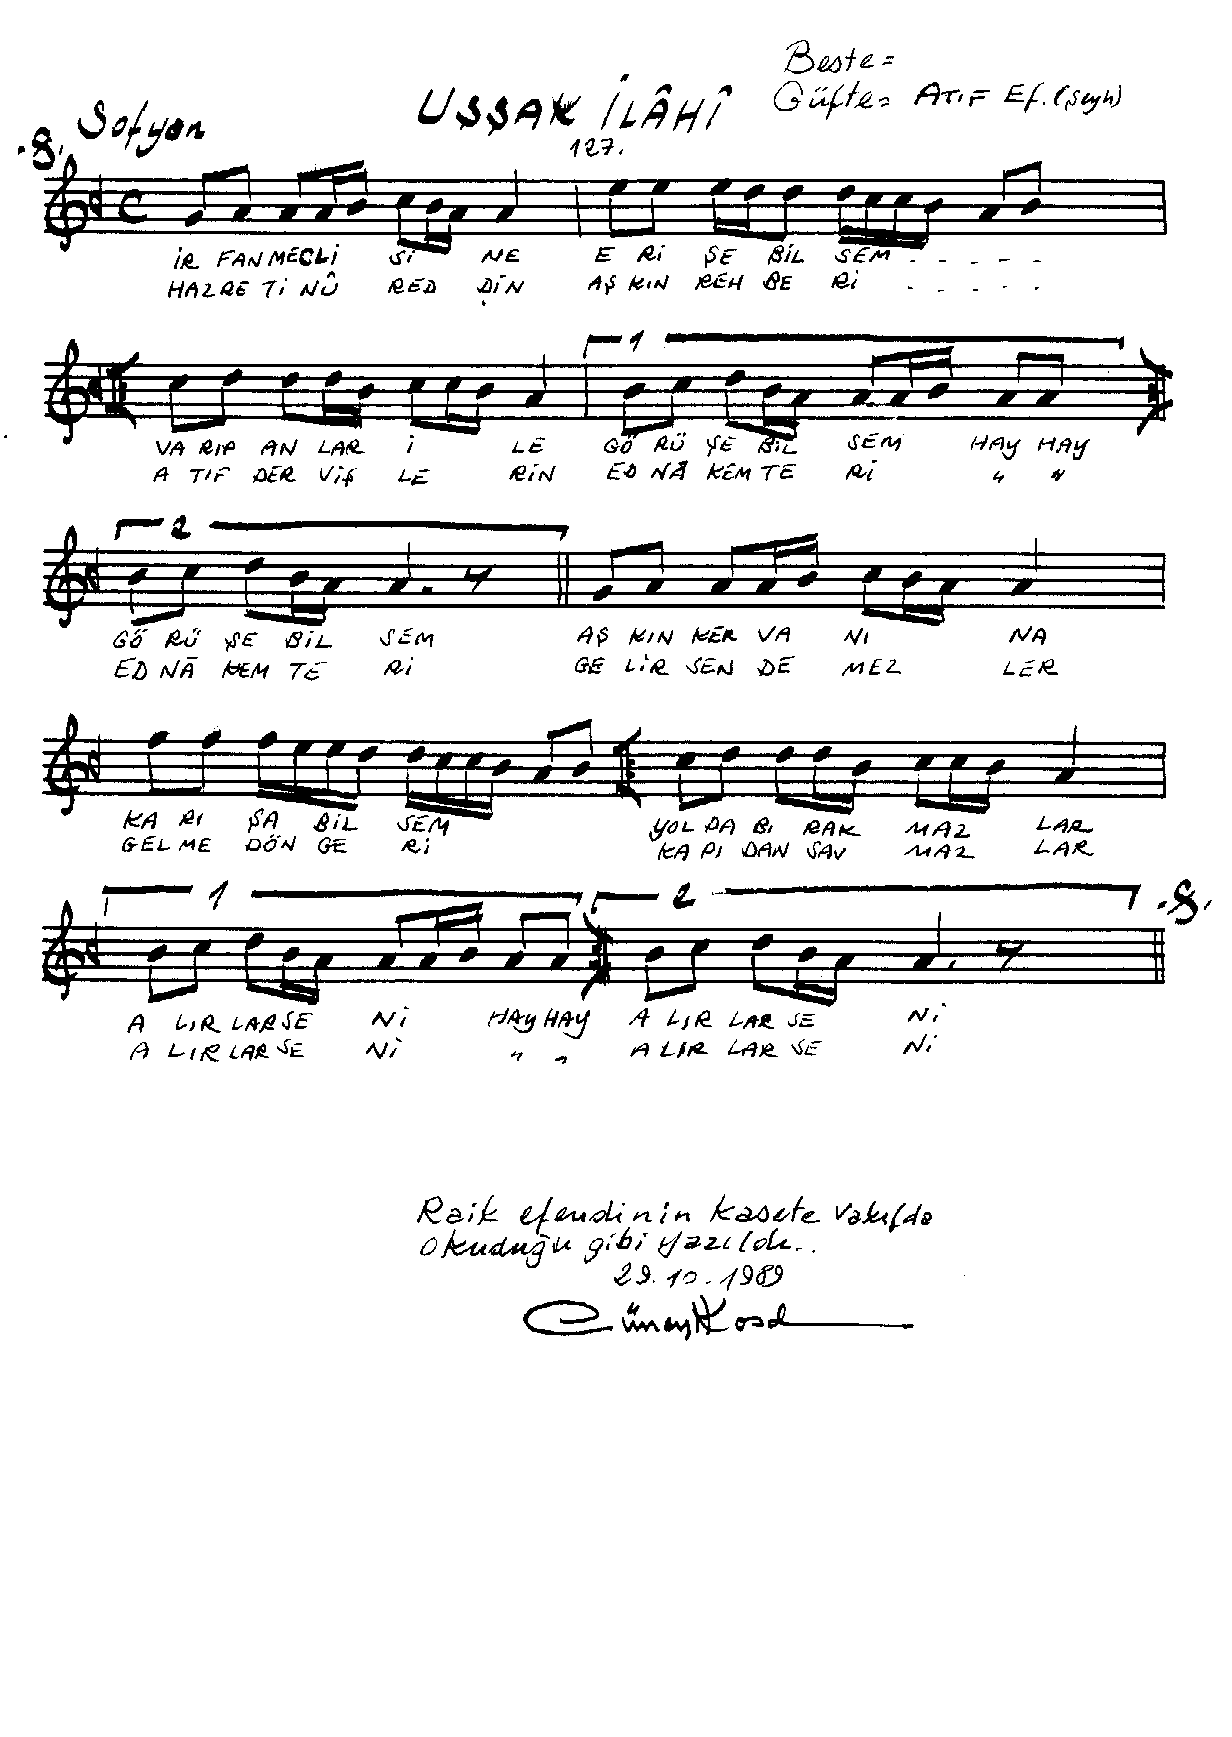 Beste=
Güfte= ATIF Ef. (Şeyh)
Sofyan
UŞŞAK İLÂHÎ
127.
İR FAN MECLİ Sİ NE E Rİ ŞE BİL SEM . - . - .
HAZRE Tİ NÛ RED DİN AŞ KIN REH BE Rİ . - . - .
1
VA RIP AN LAR İ LE GÖ RÜ ŞE BİL SEM HAY HAY
A TIF DER VİŞ LE RİN ED NÂ KEM TE Rİ " "
2
GÖ RÜ ŞE BİL SEM AŞ KIN KER VA NI NA
ED NÂ KEM TE Rİ GE LİR SEN DE MEZ LER
KA RI ŞA BİL SEM YOL DA BI RAK MAZ LAR
GEL ME DÖN GE Rİ KA PI DAN SAV MAZ LAR
1 2
A LIR LAR SE Nİ HAY HAY A LIR LAR SE Nİ
A LIR LAR SE Nİ " " A LIR LAR SE Nİ
Raik efendinin kasete Vakıfda
okuduğu gibi yazıldı..
29.10.1989
Cüneyt Kosal